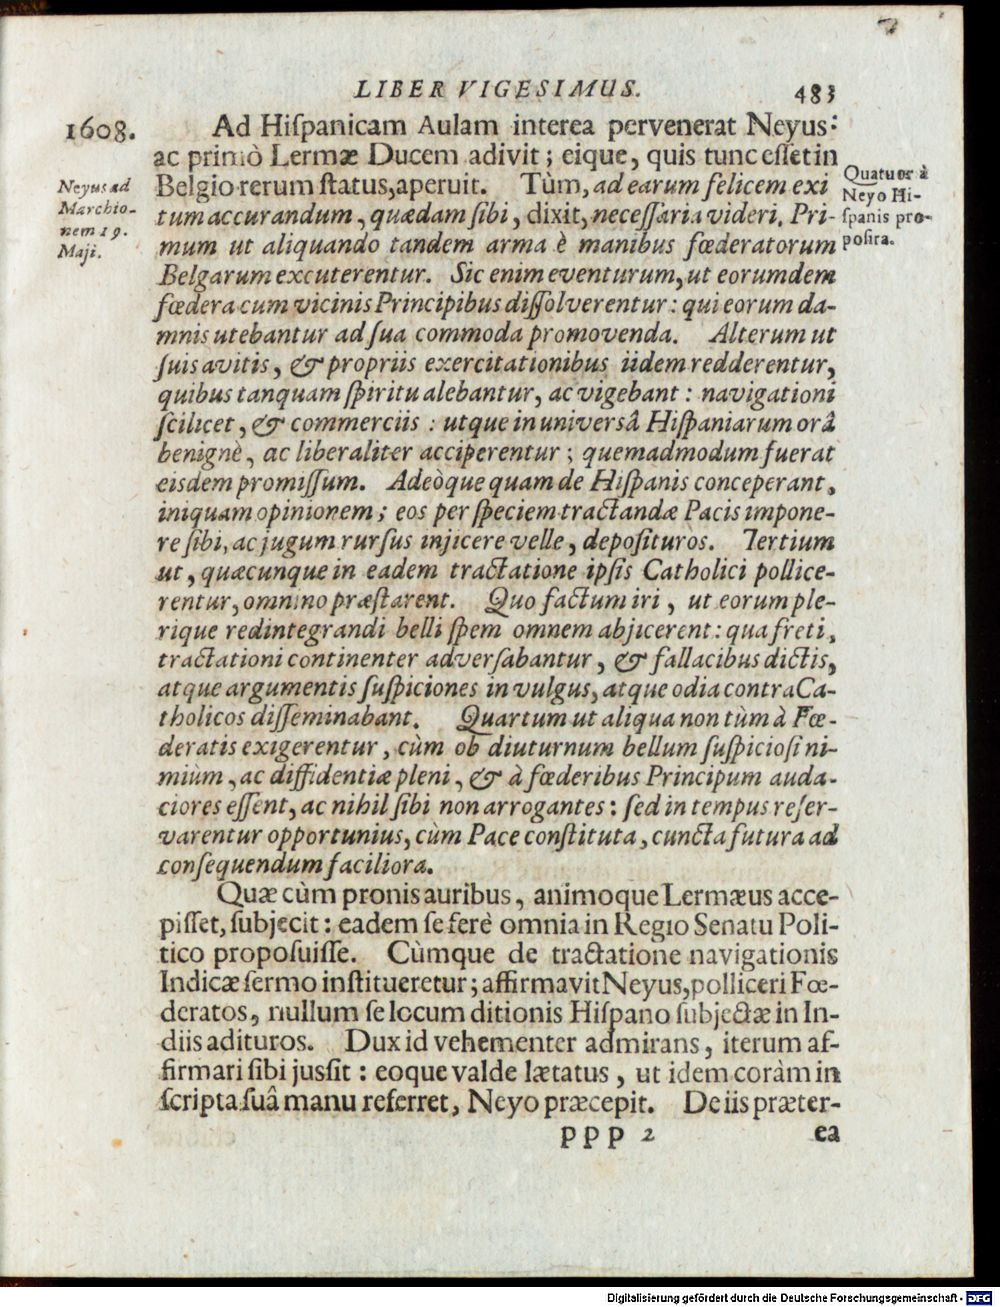 LIBER VIGESIMUS.
483
1608.
Ad Hiſpanicam Aulam interea pervenerat Neyus:
ac primò Lermæ Ducem adivit; eique, quis tunc eſſet in
Neyus ad
Marchio-
nem 19.
Maji.
Belgio rerum ſtatus, aperuit. Tùm, ad earum felicem exi
tum accurandum, quædam ſibi, dixit, neceſſaria videri. Pri-
mum ut aliquando tandem arma è manibus fœderatorum
Quatuor à
Neyo Hi-
ſpanis pro-
poſita.
Belgarum excuterentur. Sic enim eventurum, ut eorumdem
fœdera cum vicinis Principibus diſſolverentur: qui eorum da-
mnis utebantur ad ſua commoda promovenda. Alterum ut
ſuis avitis, & propriis exercitationibus iidem redderentur,
quibus tanquam ſpiritu alebantur, ac vigebant: navigationi
ſcilicet, & commerciis: utque in universâ Hiſpaniarum orâ
benignè, ac liberaliter acciperentur; quemadmodum fuerat
eisdem promiſſum. Adeòque quam de Hiſpanis conceperant,
iniquam opinionem; eos per ſpeciem tractandæ Pacis impone-
re ſibi, ac jugum rurſus injicere velle, depoſituros. Tertium
ut, quæcunque in eadem tractatione ipſis Catholici pollice-
rentur, omnino præſtarent. Quo factum iri, ut eorum ple-
rique redintegrandi belli ſpem omnem abjicerent: qua freti,
tractationi continenter adverſabantur, & fallacibus dictis,
atque argumentis ſuſpiciones in vulgus, atque odia contra Ca-
tholicos diſſeminabant. Quartum ut aliqua non tùm à Fœ-
deratis exigerentur, cùm ob diuturnum bellum ſuſpicioſi ni-
miùm, ac diffidentiæ pleni, & à fœderibus Principum auda-
ciores eſſent, ac nihil ſibi non arrogantes: ſed in tempus reſer-
varentur opportunius, cùm Pace conſtituta, cuncta futura ad
conſequendum faciliora.
Quæ cùm pronis auribus, animoque Lermæus acce-
piſſet, ſubjecit: eadem ſe ferè omnia in Regio Senatu Poli-
tico propoſuiſſe. Cùmque de tractatione navigationis
Indicæ ſermo inſtitueretur; affirmavit Neyus, polliceri Fœ-
deratos, nullum ſe locum ditionis Hiſpano ſubjectæ in In-
diis adituros. Dux id vehementer admirans, iterum af-
firmari ſibi juſſit: eoque valde lætatus, ut idem coràm in
ſcripta ſuâ manu referret, Neyo præcepit. De iis præter-
ppp 2
ea
Digitalisierung gefördert durch die Deutsche Forschungsgemeinschaft - DFG